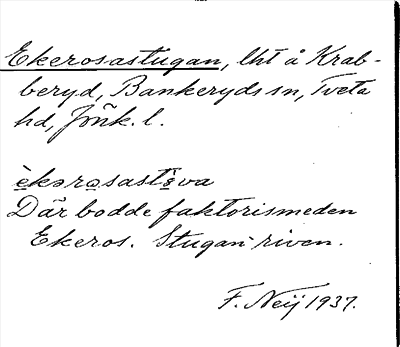 Ekerosastugan, lht å Krab-
beryd, Bankeryds sn, Tveta
hd, Jönk. l.
èkərosastèva
Där bodde faktorismeden
Ekeros. Stugan riven.
F. Neij 1937.